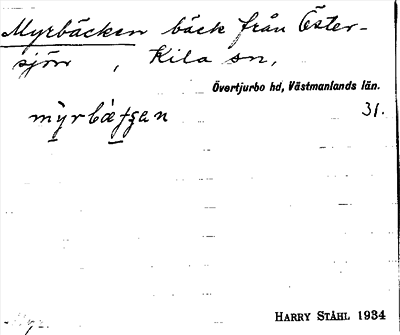 Myrbäcken bäck från Öster-
sjön , Kila sn,
Övertjurbo hd, Västmanlands län.
mỳrbæ̀tʂan 31.
HARRY STÅHL 1934